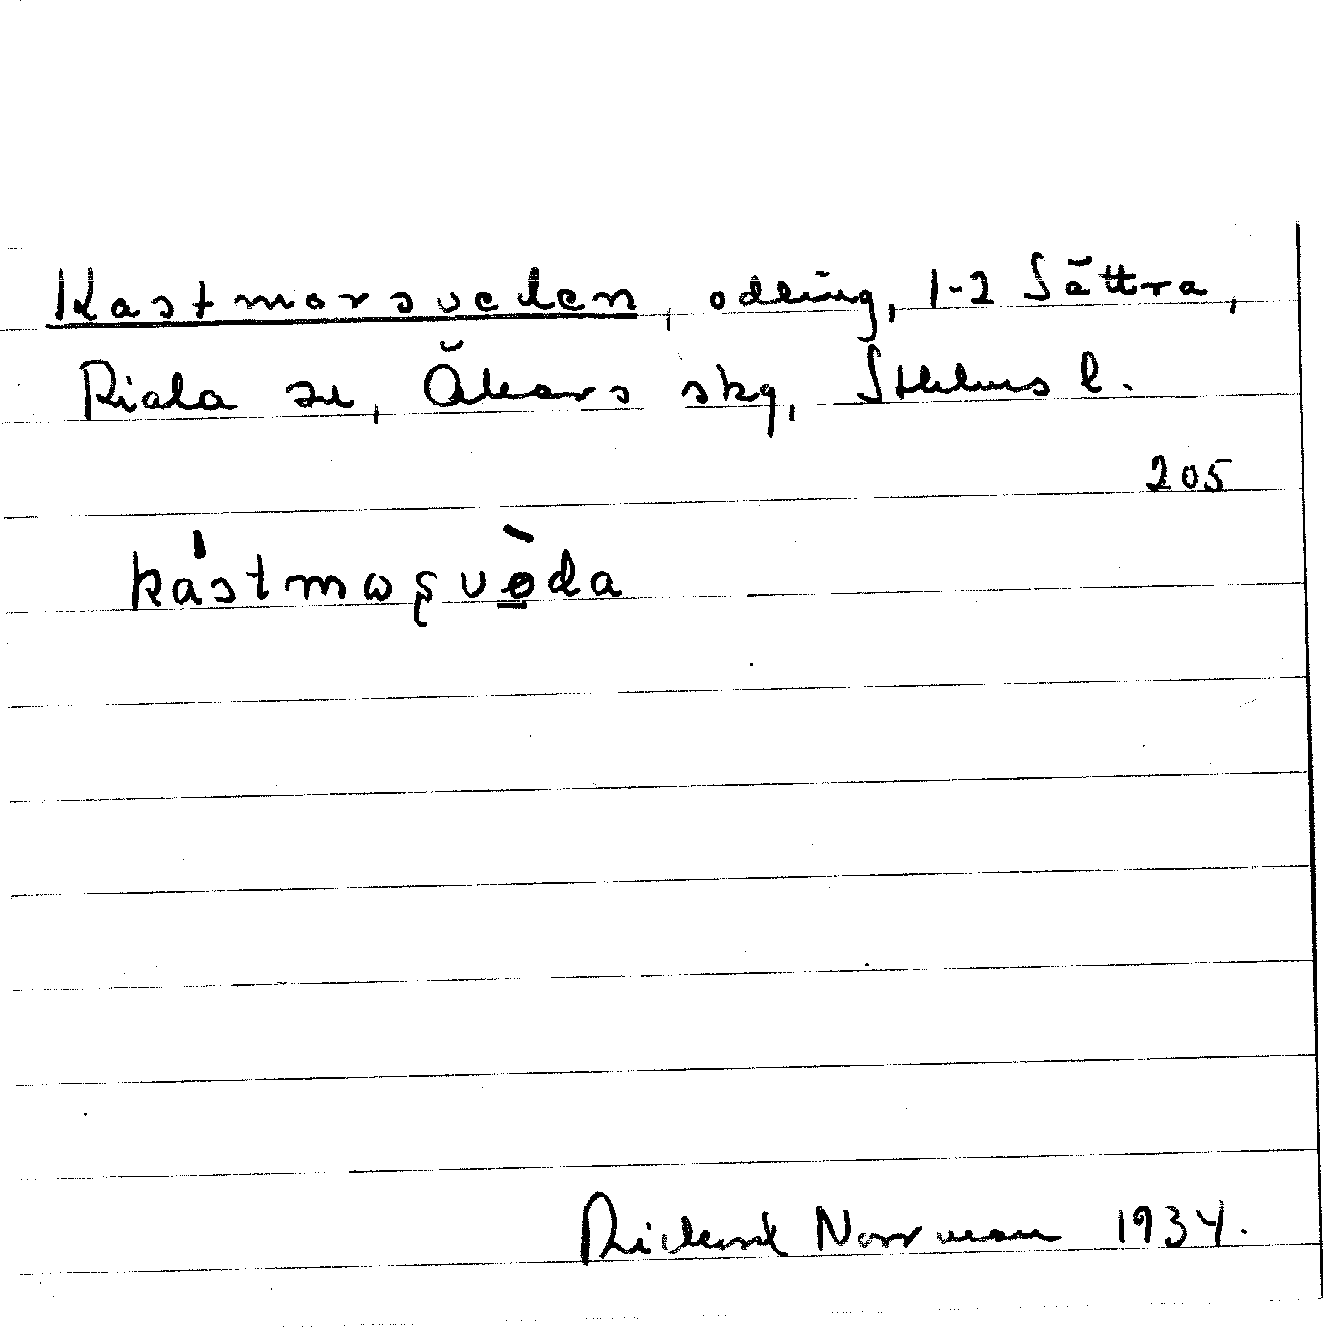 Kastmorsveden, odling, 1-2 Sättra,
Riala sn, Åkers skg, Sthlms l.
205
kástmoşvèda
Rickard Norrman 1934.